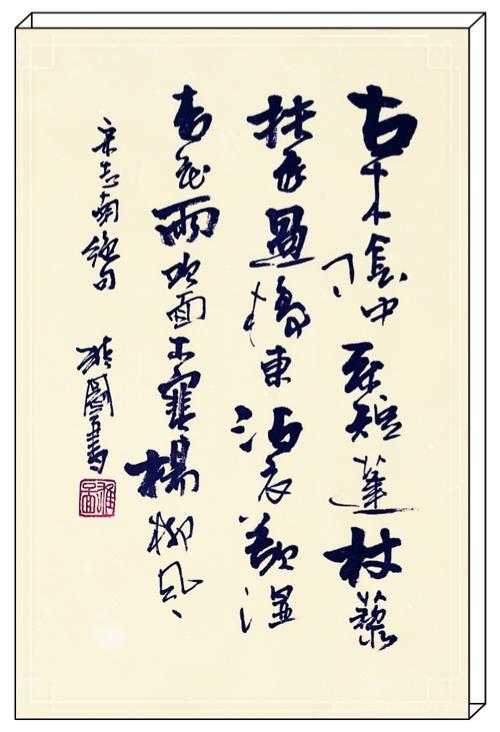 古木陰中系短蓬杖藜
扶我過橋東沾衣欲湿
杏花雨吹面不寒楊柳风
宋志南絕句
書